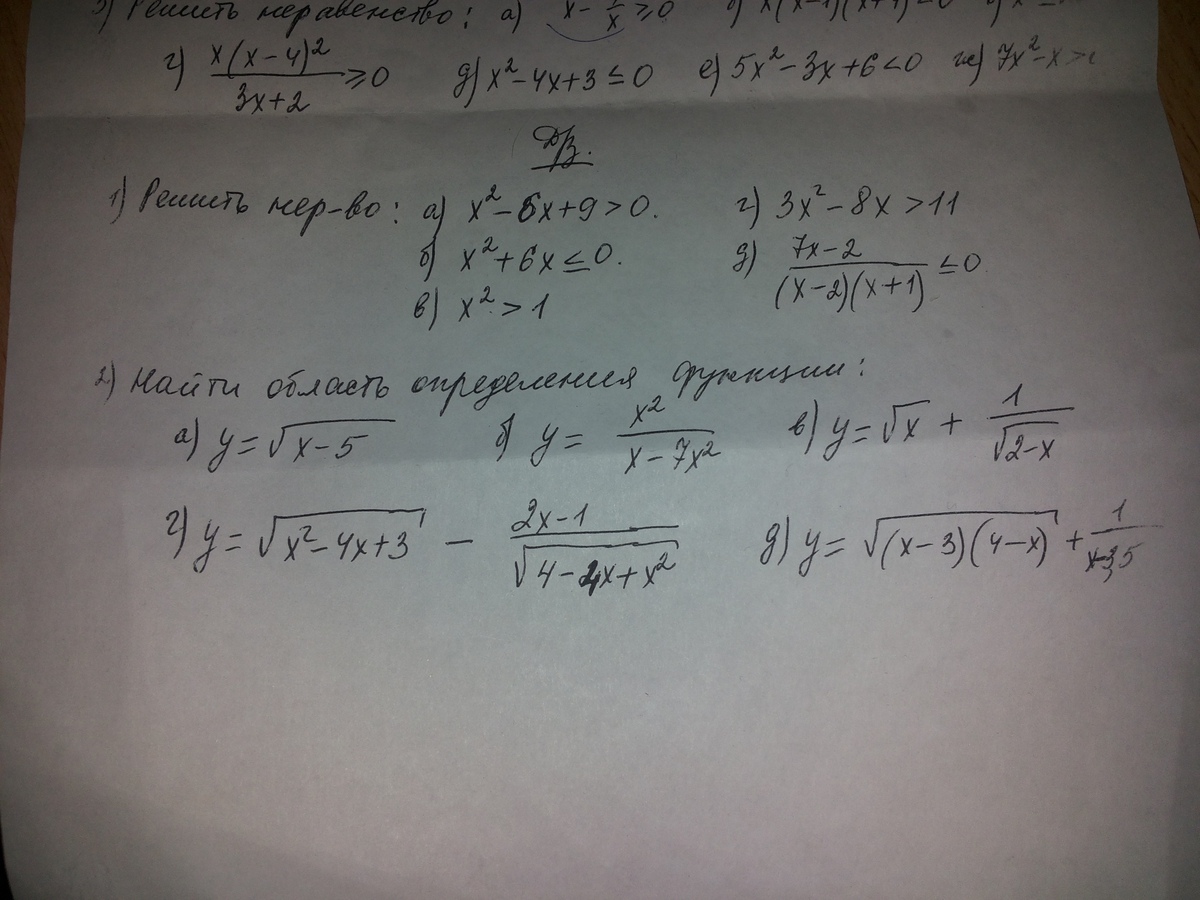 3) Решить неравенство: а) x - 1/x ≥ 0 б) x(x-1)(x+
г) x(x-4)²/(3x+2) ≥ 0 д) x²-4x+3 ≤ 0 е) 5x²-3x+6<0 ж) 7x²-x>
Д/З.
1) Решить нер-во: а) x²-6x+9>0. г) 3x²-8x>11
б) x²+6x≤0. д) (7x-2)/((x-2)(x+1)) ≤0
в) x²>1
2) Найти область определения функции:
а) y=√(x-5) б) y= x²/(x-7x²) в) y=√x + 1/√(2-x)
г) y=√(x²-4x+3) - (2x-1)/√(4-4x+x²) д) y=√((x-3)(4-x)) + 1/(x-3,5)